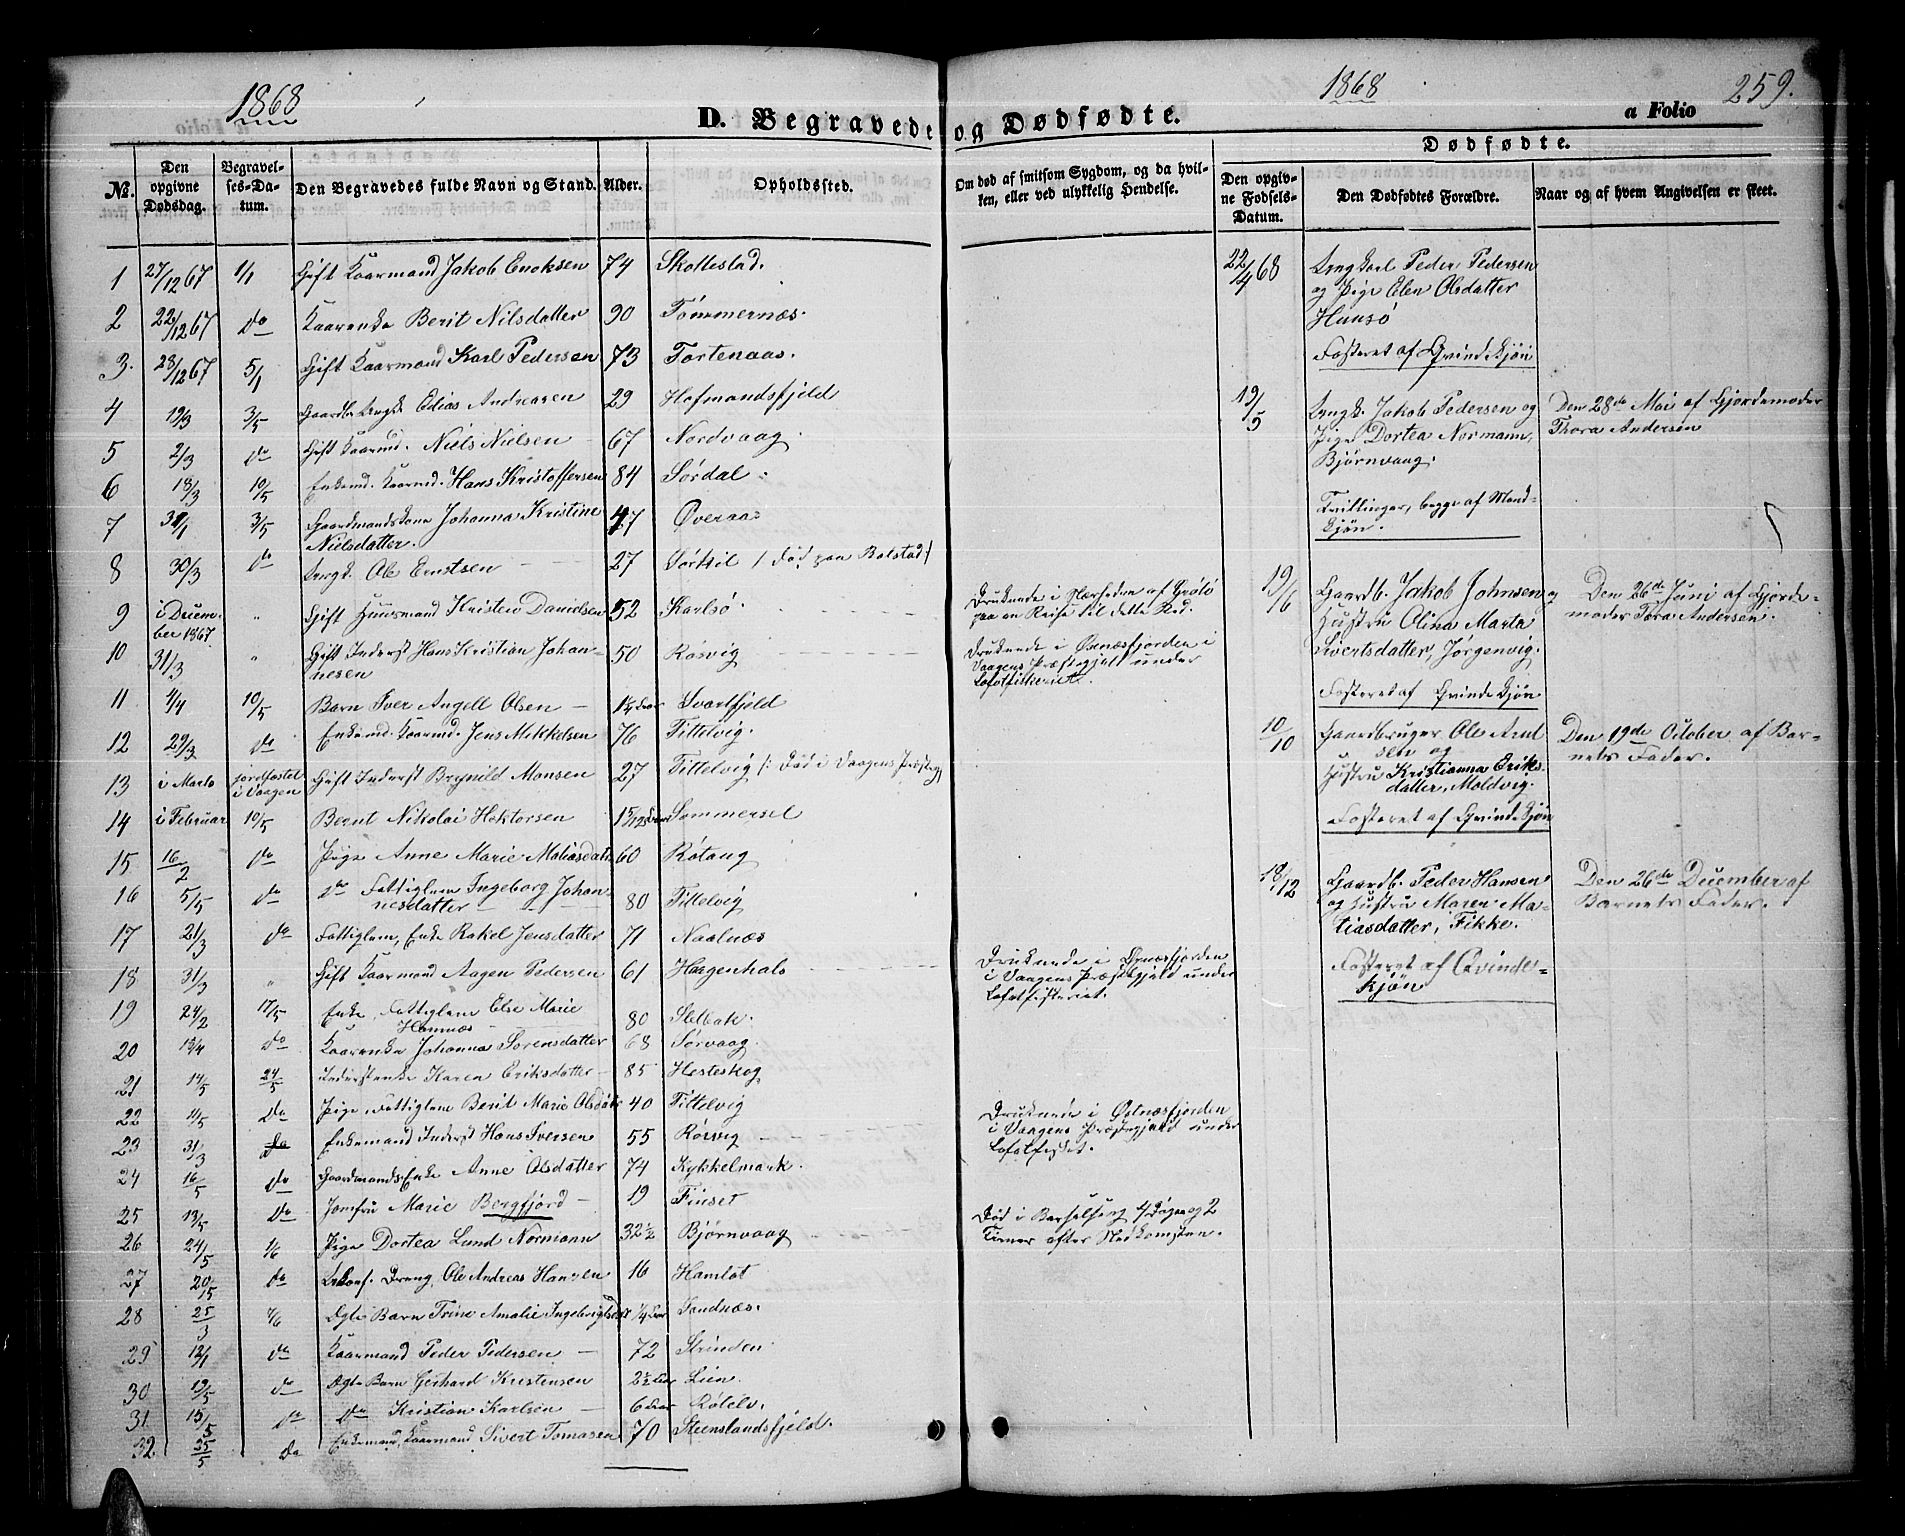 1868
1868
259.
D. Begravede og Dødfødte.
a Folio
Dødfødte.
№.
Den opgivne Dødsdag.
Begravelses-Datum.
Den Begravedes fulde Navn og Stand.
Alder.
Opholdssted.
Om død af smitsom Sygdom, og da hvilken, eller ved ulykkelig Hendelse.
Den opgivne Fødsels-Datum.
Den Dødfødtes Forældre.
Naar og af hvem Angivelsen er skeet.
1 27/12 67 1/1 Gift Kaarmand Jakob Enoksen 74 Skottestad.
2 22/12 67 do Kaarenke Berit Nilsdatter 90 Tømmernæs.
3. 28/12 67 5/1 Gift Kaarmand Karl Pedersen 73 Tortenaas.
4 19/3 3/5 Gaardbr. Ungk. Edias Andreasen 29 Hofmandsfjeld
5 2/3 do Gift Kaarmd. Niels Nielsen 67 Nordvaag.
6 18/3 10/5 Enkemd. Kaarmd. Hans Kristoffersen 84 Sørdal.
7 31/1 3/5 Gaardmandskone Johanna Kristine 47 Øveraas
Nielsdatter.
8 30/3 do Ungk. Ole Erntsen 27 Sørkil / død paa Bolstad /
9 i Decem- " Gift Huusmand Kristen Davidsen 52 Karlsø. Druknede i Nærheden af Grøtø
ber 1867 paa en Reise til dette Sted.
10 31/3 " Gift Inderst Hans Kristian Johan- 50 Rørvig Druknede i Østnæsfjorden i
nesen Vaagens Præstegjeld under
Lofotfiskeriet.
11 4/4 10/5 Barn Iver Angell Olsen 1¼ Aar Svartfjeld
12 29/3 do Enkemd. Kaarmd. Jens Mikkelsen 76 Tittelvig.
13 i Marts jordfæstet Gift Inderst Brynild Monsen 27 Tittelvig /: Død i Vaagens Præsteg
i Vaagen
14 i Februar 10/5 Bernt Nikolai Hektorsen Sommersel
15 16/2 do Pige Anne Marie Matiasdatt. 60 Røtang
16 5/5 do do Fattiglem Ingeborg Johan- 80 Tittelvig
nesdatter
17 21/3 do Fattiglem, Enke Rakel Jensdatter 71 Naalnæs
18 31/3 " Gift Kaarmand Aagen Pedersen 61 Haagenhals Druknede i Østnæsfjorden
i Vaagens Præstegjeld under
Lofotfiskeriet.
19 24/2 17/5 Enke Fattiglem Else Marie 80 Slelbak.
Hamnæs
20 13/4 do Kaarenke Johanna Sørensdatter 68 Sørvaag.
21 14/5 24/5 Inderstenke Karen Eriksdatter 85 Hesteskog
22 11/5 do Pige Fattiglem Berit Marie Olsdatr 40 Tittelvig
23 31/3 do Enkemand Inderst Hans Iversen 55 Rørvig Druknede i Østnæsfjorden
i Vaagens Præstegjeld under
Lofotfisket.
24 16/5 do Gaardmandsenke Anne Olsdatter 74 Kykkelmark.
25 13/5 do Jomfru Marie Bergfjord 19 Finset
26 24/5 1/6 Pige Dortea Lund Normann 32½ Bjørnvaag Død i Barselseng 4 Døgn og 2
Timer efter Nedkomsten.
27 20/5 do Ukonf. Dreng Ole Andreas Hansen 16 Hamlot
28 25/3 7/6 Ægte Barn Trine Amalie Ingebrigtsdatt ¼ Aar Sandnæs.
29 12/1 do Kaarmand Peder Pedersen 72 Strinden
30 19/5 do Ægte Barn Gerhard Kristensen 2½ Aar Lien.
31 15/5 do do Kristian Karlsen 6 Aar Røtelv.
32 25/5 do Enkemand, Kaarmand, Sivert Tomasen 70 Steenslandsfjeld.
22/4 68 Ungkarl Peder Pedersen
og Pige Elen Olsdatter
Hunsø
Fosteret af Qvindekjøn
19/5 Ungk. Jakob Pedersen og Den 28de Mai af Gjordemoder
Pige Dortea Normann, Thora Andersen
Bjørnvaag.
Tvillinger, begge af Mand-
kjøn.
19/6 Gaardb. Jakob Johnsen og Den 26de Juni af Gjorde-
Hustru Olina Marta moder Tora Andersen.
Sivertsdatter, Jørgenvig.
Fosteret af Qvindekjøn
10/10 Gaardbruger Ole Arnt Den 19de October af Bar-
sen og nets Fader.
Hustru Kristianna Eriks-
datter, Moldvig.
Fosteret af Qvindekjøn
18/12 Gaardb. Peder Hansen Den 26de December af
og Hustru Maren Ma- Barnets Fader.
tiasdatter, Fikke.
Fosteret af Qvinde-
kjøn